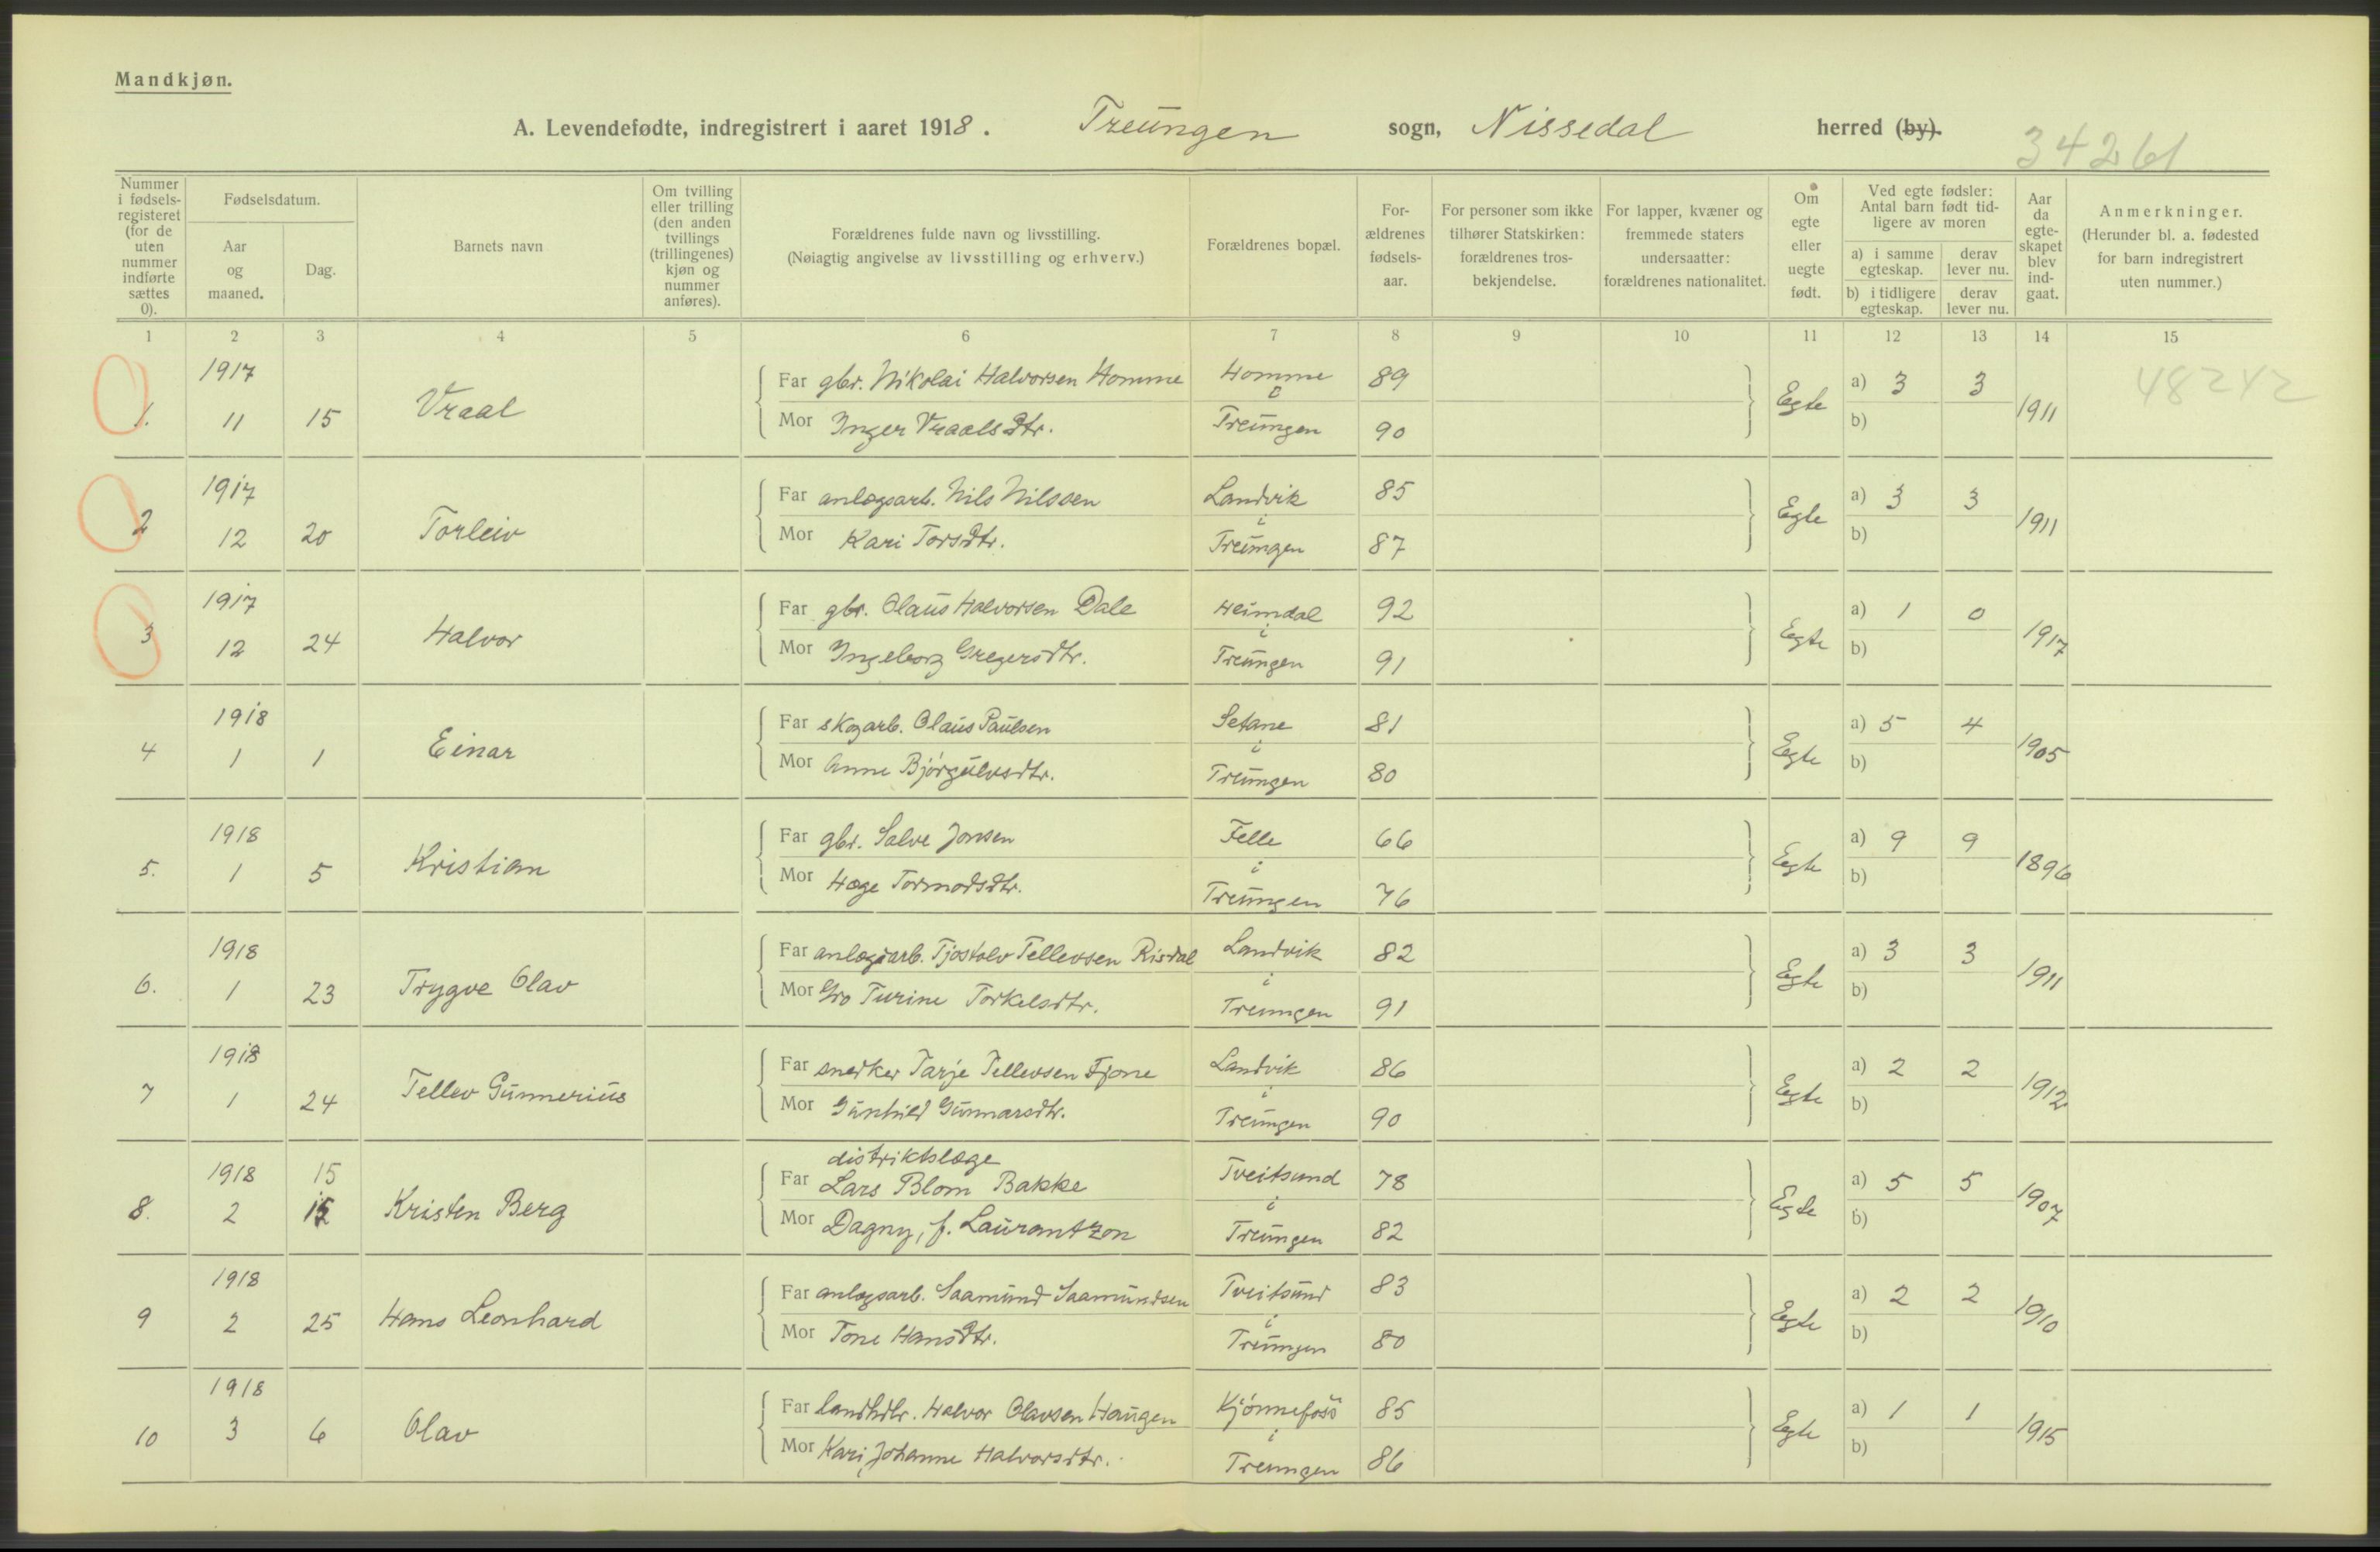 Mandkjøn.
A. Levendefødte, indregistrert i aaret 1918. Treungen sogn, Nissedal herred (by).
34261
Nummer i fødsels-registeret (for de uten nummer indførte sættes 0).
Fødselsdatum.
Aar og maaned.
Dag.
Barnets navn
Om tvilling eller trilling (den anden tvillings (trillingenes) kjøn og nummer anføres).
Forældrenes fulde navn og livsstilling.
(Nøiagtig angivelse av livsstilling og erhverv.)
Forældrenes bopæl.
For-ældrenes fødsels-aar.
For personer som ikke tilhører Statskirken: forældrenes tros-bekjendelse.
For lapper, kvæner og fremmede staters undersaatter: forældrenes nationalitet.
Om egte eller uegte født.
Ved egte fødsler: Antal barn født tid-ligere av moren
a) i samme egteskap. derav lever nu.
b) i tidligere egteskap. derav lever nu.
Aar da egte-skapet blev ind-gaat.
Anmerkninger.
(Herunder bl. a. fødested for barn indregistrert uten nummer.)
1 2 3 4 5 6 7 8 9 10 11 12 13 14 15
1917 Far gbr. Nikolai Halvorsen Homme Homme i 89 a) 3 3 48242
1. 11 15 Vraal Mor Inger Vraalsdtr. Treungen 90 Egte b) 1911
1917 Far anlegsarb. Nils Nilssen Landvik i 85 a) 3 3
2 12 20 Torleiv Mor Kari Torsdtr. Treungen 87 Egte b) 1911
1917 Far gbr. Olaus Halvorsen Dale Heimdal i 92 a) 1 0
3 12 24 Halvor Mor Ingeborg Gregersdtr. Treungen 91 Egte b) 1917
1918 Far skogarb. Olaus Paulsen Setane i 81 a) 5 4
4 1 1 Einar Mor Anne Bjørgulvsdtr. Treungen 80 Egte b) 1905
1918 Far gbr. Salve Jonsen Felle i 66 a) 9 9
5. 1 5 Kristian Mor Hæge Tormodsdtr. Treungen 76 Egte b) 1896
1918 Far anlegsarb. Tjostolv Tellevsen Risdal Landvik i 82 a) 3 3
6. 1 23 Trygve Olav Mor Gro Turine Torkelsdtr. Treungen 91 Egte b) 1911
1918 Far snedker Tarje Tellevsen Fjone Landvik i 86 a) 2 2
7 1 24 Tellev Gunnerius Mor Gunhild Gunnarsdtr. Treungen 90 Egte b) 1912
distriktslæge
1918 15 Far Lars Blom Bakke Tveitsund i 78 a) 5 5
8. 2 15 Kristen Berg Mor Dagny, f. Laurantzon Treungen 82 Egte b) 1907
1918 Far anlegsarb. Saamund Saamundsen Tveitsund i 83 a) 2 2
9 2 25 Hans Leonhard Mor Tone Hansdtr. Treungen 80 Egte b) 1910
1918 Far landhdlr. Halvor Olavsen Haugen Kjønnefoss i 85 a) 1 1
10 3 6 Olav Mor Kari Johanne Halvorsdtr. Treungen 86 Egte b) 1915